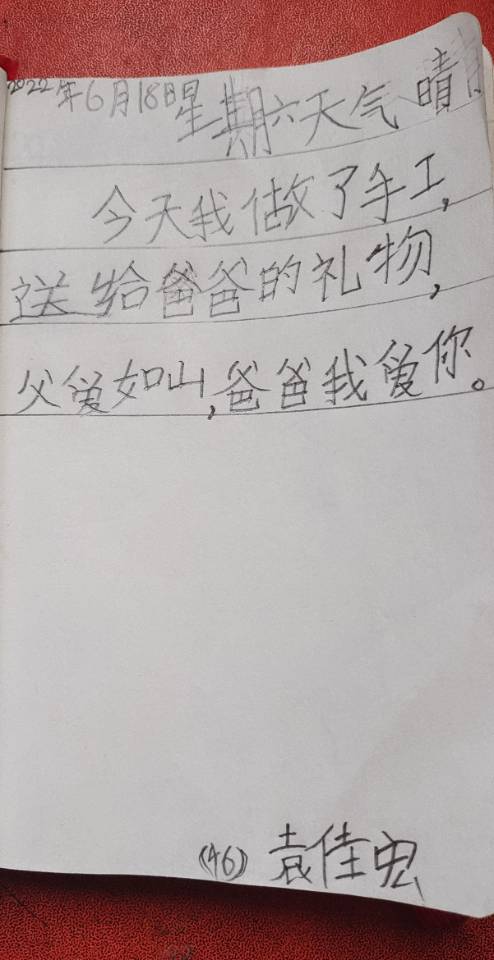 2022年6月18日星期六天气晴
今天我做了手工,
送给爸爸的礼物,
父爱如山,爸爸我爱你。
(46) 袁佳宏